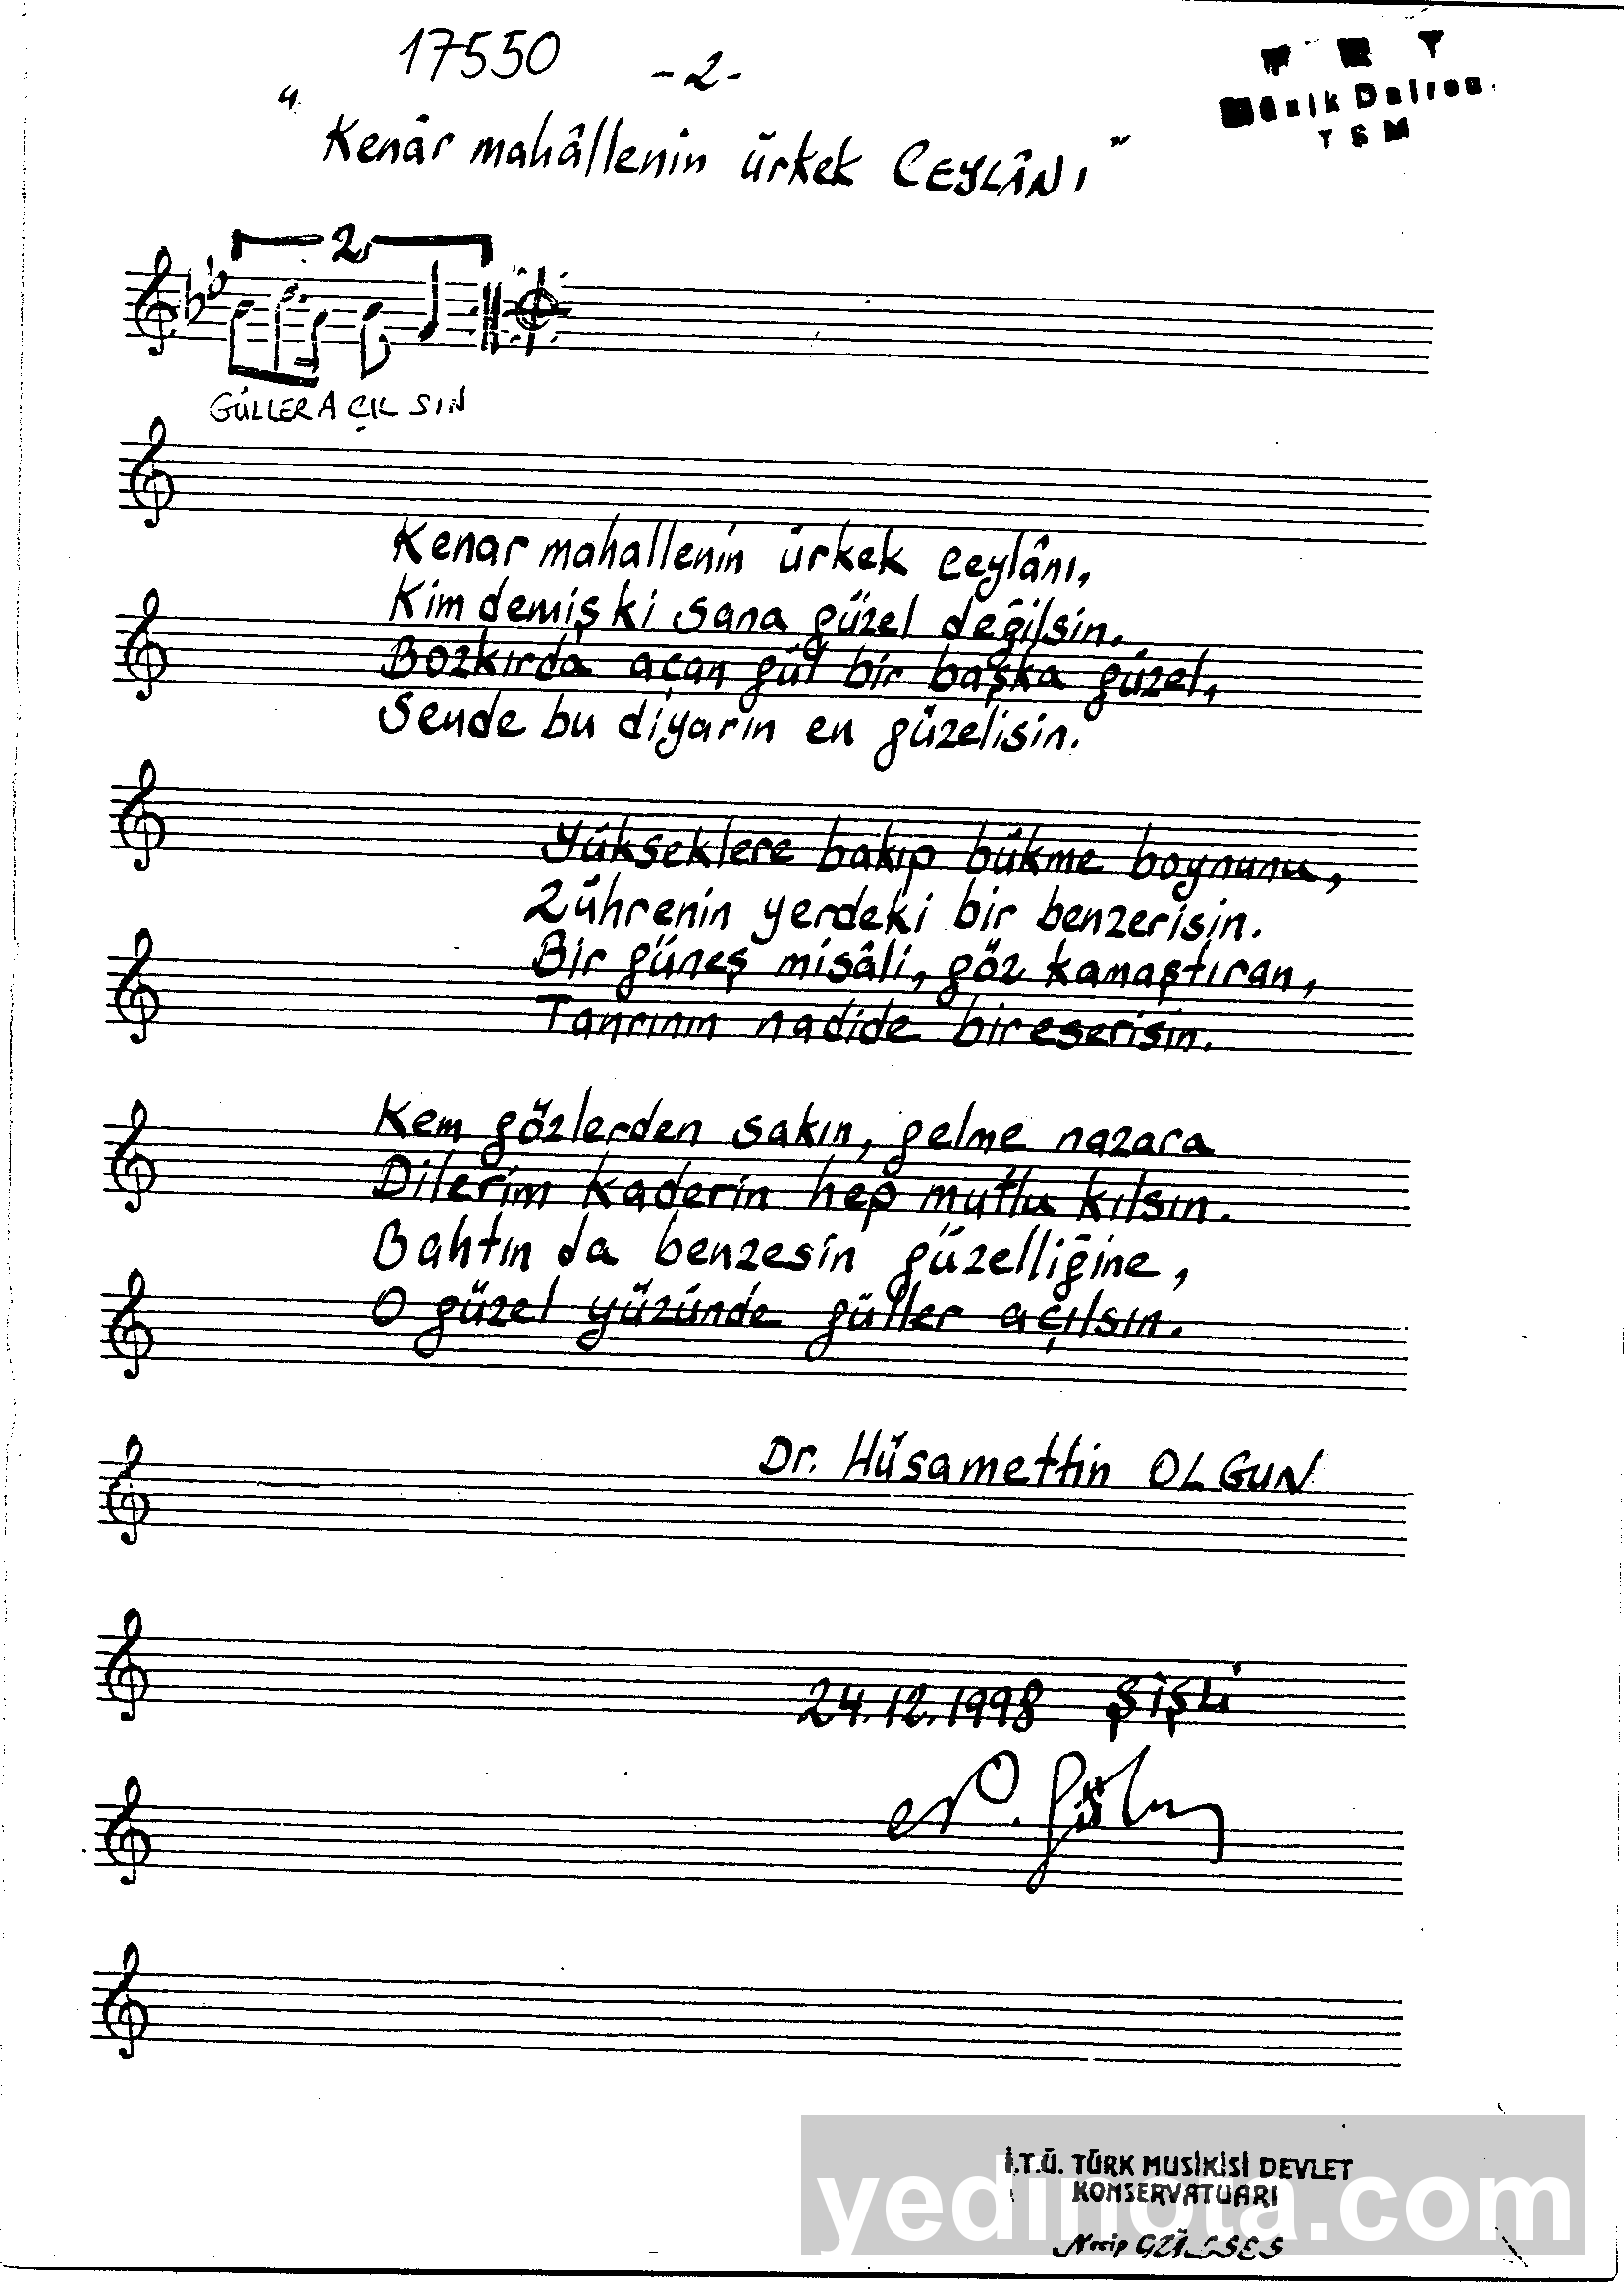 17550 -2-
T R T
Müzik Dairesi
TSM
"Kenâr mahâllenin ürkek CEYLÂNI"
2
GÜLLER AÇIL SIN
Kenar mahallenin ürkek ceylânı,
Kim demiş ki sana güzel değilsin.
Bozkırda açan gül bir başka güzel,
Sende bu diyarın en güzelisin.
Yükseklere bakıp bükme boynunu,
Zührenin yerdeki bir benzerisin.
Bir güneş misâli, göz kamaştıran,
Tanrının nadide bir eserisin.
Kem gözlerden sakın, gelme nazara
Dilerim kaderin hep mutlu kılsın.
Bahtın da benzesin güzelliğine,
O güzel yüzünde güller açılsın.
Dr. Hüsamettin OLGUN
24.12.1998 ŞİŞLİ
İ.T.Ü. TÜRK MUSİKİSİ DEVLET
KONSERVATUARI
yedinota.com
Necip GÜLSES